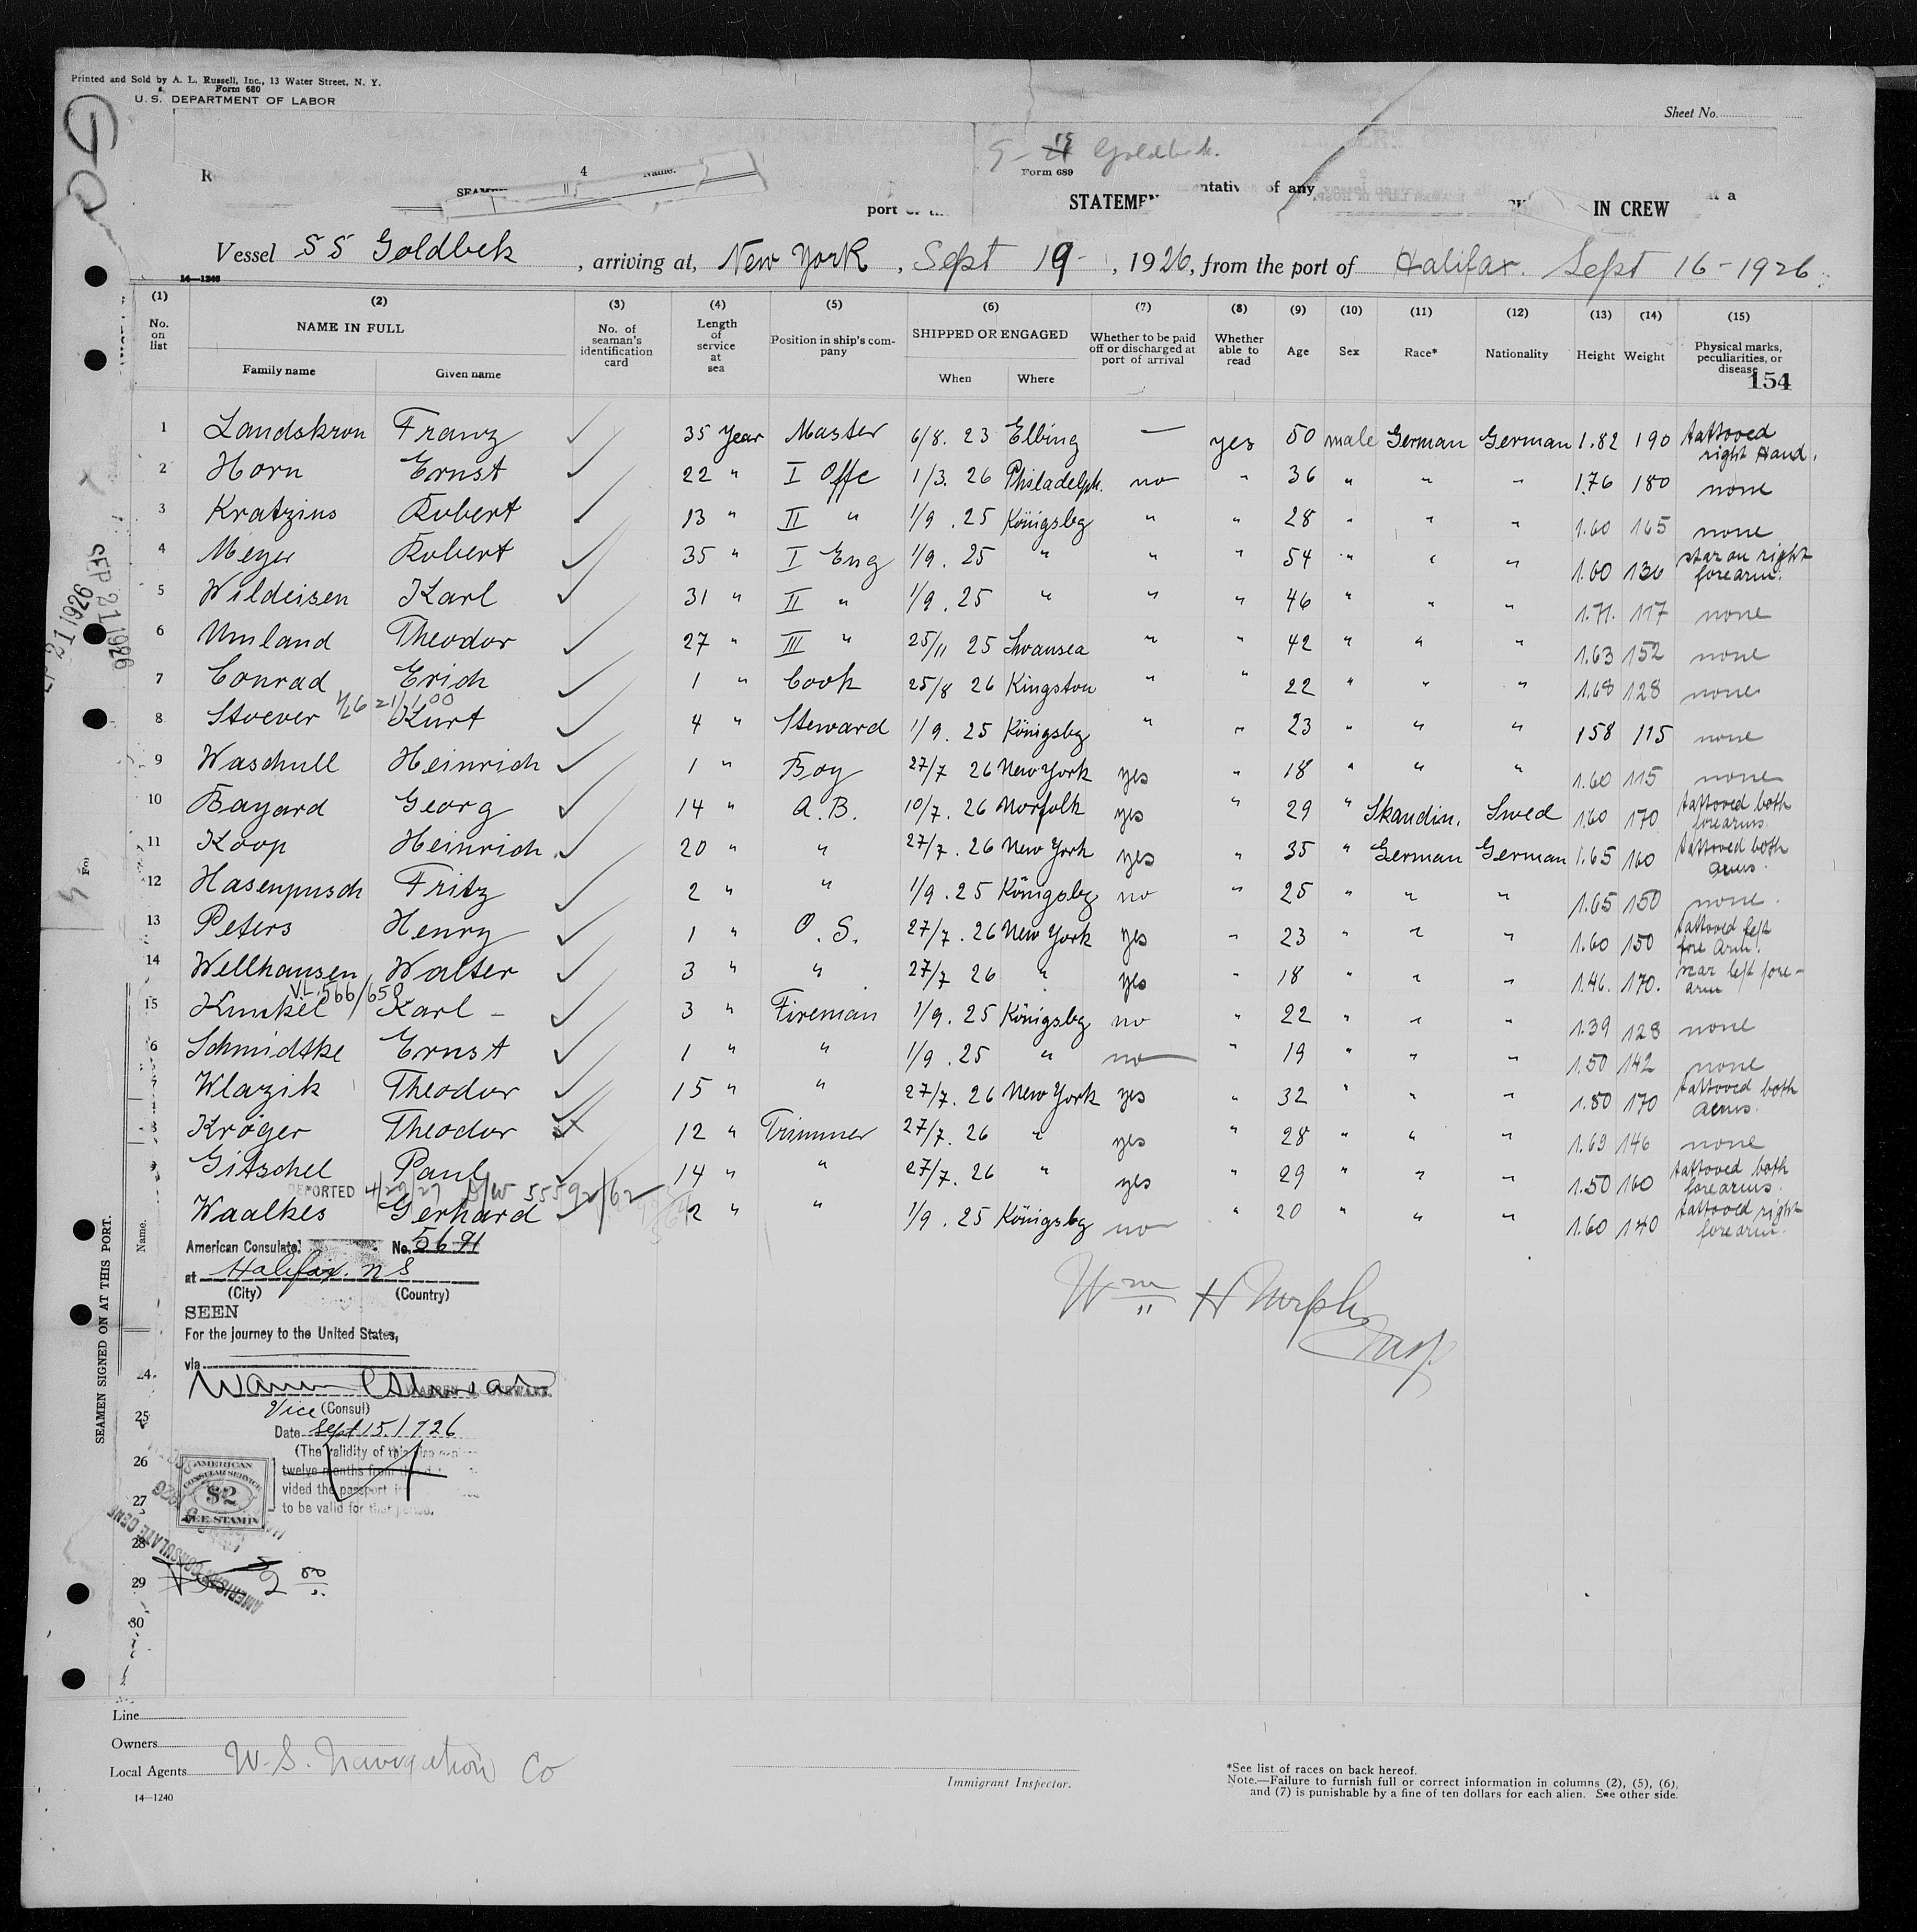 Printed and Sold by A. L. Russell, Inc., 13 Water Street, N. Y.
Form 680
U. S. DEPARTMENT OF LABOR
Sheet No.
Goldbek.
Form 689
4 Name.
of any
STATEMEN
IN CREW
port
Vessel SS Goldbek, arriving at, New York, Sept 19-, 1926, from the port of Halifax. Sept 16-1926.
14-1240
(1) (2) (3) (4) (5) (6) (7) (8) (9) (10) (11) (12) (13) (14) (15)
No. on list NAME IN FULL Family name Given name No. of seaman's identification card Length of service at sea Position in ship's company SHIPPED OR ENGAGED When Where Whether to be paid off or discharged at port of arrival Whether able to read Age Sex Race* Nationality Height Weight Physical marks, peculiarities, or disease
154
1 Landskron Franz ✓ 35 Year Master 6/8. 23 Elbing — yes 50 male German German 1.82 190 tattooed right Hand.
2 Horn Ernst ✓ 22 " I Offc 1/3. 26 Philadelph. no " 36 " " " 1.76 180 none
3 Kratzius Robert ✓ 13 " II " 1/9. 25 Königsbg " " 28 " " " 1.60 165 none
4 Meyer Robert ✓ 35 " I Eng 1/9. 25 " " " 54 " " " 1.60 136 star on right forearm.
5 Wildeisen Karl ✓ 31 " II " 1/9. 25 " " " 46 " " " 1.71. 117 none
6 Umland Theodor ✓ 27 " III " 25/11 25 Swansea " " 42 " " " 1.63 152 none
7 Conrad Erich ✓ 1 " Cook 25/8 26 Kingston " " 22 " " " 1.68 128 none
8 Stoever Kurt ✓ 4 " Steward 1/9. 25 Königsbg " " 23 " " " 158 115 none
9 Waschull Heinrich ✓ 1 " Boy 27/7 26 New York yes " 18 " " " 1.60 115 none
10 Bayard Georg ✓ 14 " A.B. 10/7. 26 Norfolk yes " 29 " Skandin. Swed 1.60 170 tattooed both forearms
11 Koop Heinrich. ✓ 20 " " 27/7. 26 New York yes " 35 " German German 1.65 160 tattooed both arms.
12 Hasenpusch Fritz ✓ 2 " " 1/9. 25 Königsbg no " 25 " " " 1.65 150 none.
13 Peters Henry ✓ 1 " O.S. 27/7. 26 New York yes " 23 " " " 1.60 150 tattooed left fore Arm.
14 Wellhausen Walter ✓ 3 " " 27/7 26 " yes " 18 " " " 1.46. 170. scar left forearm
15 Kunkel Karl - ✓ 3 " Fireman 1/9. 25 Königsbg no " 22 " " " 1.39 128 none
6 Schmidtke Ernst ✓ 1 " " 1/9. 25 " no " 19 " " " 1.50 142 none
7 Klazik Theodor ✓ 15 " " 27/7. 26 New York yes " 32 " " " 1.80 170 tattooed both Arms.
8 Kröger Theodor ✓ 12 " Trimmer 27/7. 26 " yes " 28 " " " 1.69 146 none
Gitschel Paul ✓ 14 " " 27/7. 26 " yes " 29 " " " 1.50 160 tattooed both forearms.
DEPORTED 4/29/27
Waalkes Gerhard ✓ 2 " " 1/9. 25 Königsbg no " 20 " " " 1.60 140 tattooed right forearm.
American Consulate No. 5691
at Halifax. N S
(City) (Country)
SEEN
For the journey to the United States,
via
Vice (Consul)
Date Sept 15. 1926
(The validity of this
twelve months from
vided the passport
to be valid for that period.
AMERICAN CONSULAR SERVICE
$2
FEE STAMP
AMERICAN CONSULATE GENE
Wm H Murphy
Insp.
24
25
26
27
28
29
30
SEP 21 1926
SEAMEN SIGNED ON AT THIS PORT.
Name.
Line
Owners
Local Agents W. S. Navigation Co
14-1240
Immigrant Inspector.
*See list of races on back hereof.
Note.—Failure to furnish full or correct information in columns (2), (5), (6), and (7) is punishable by a fine of ten dollars for each alien. See other side.